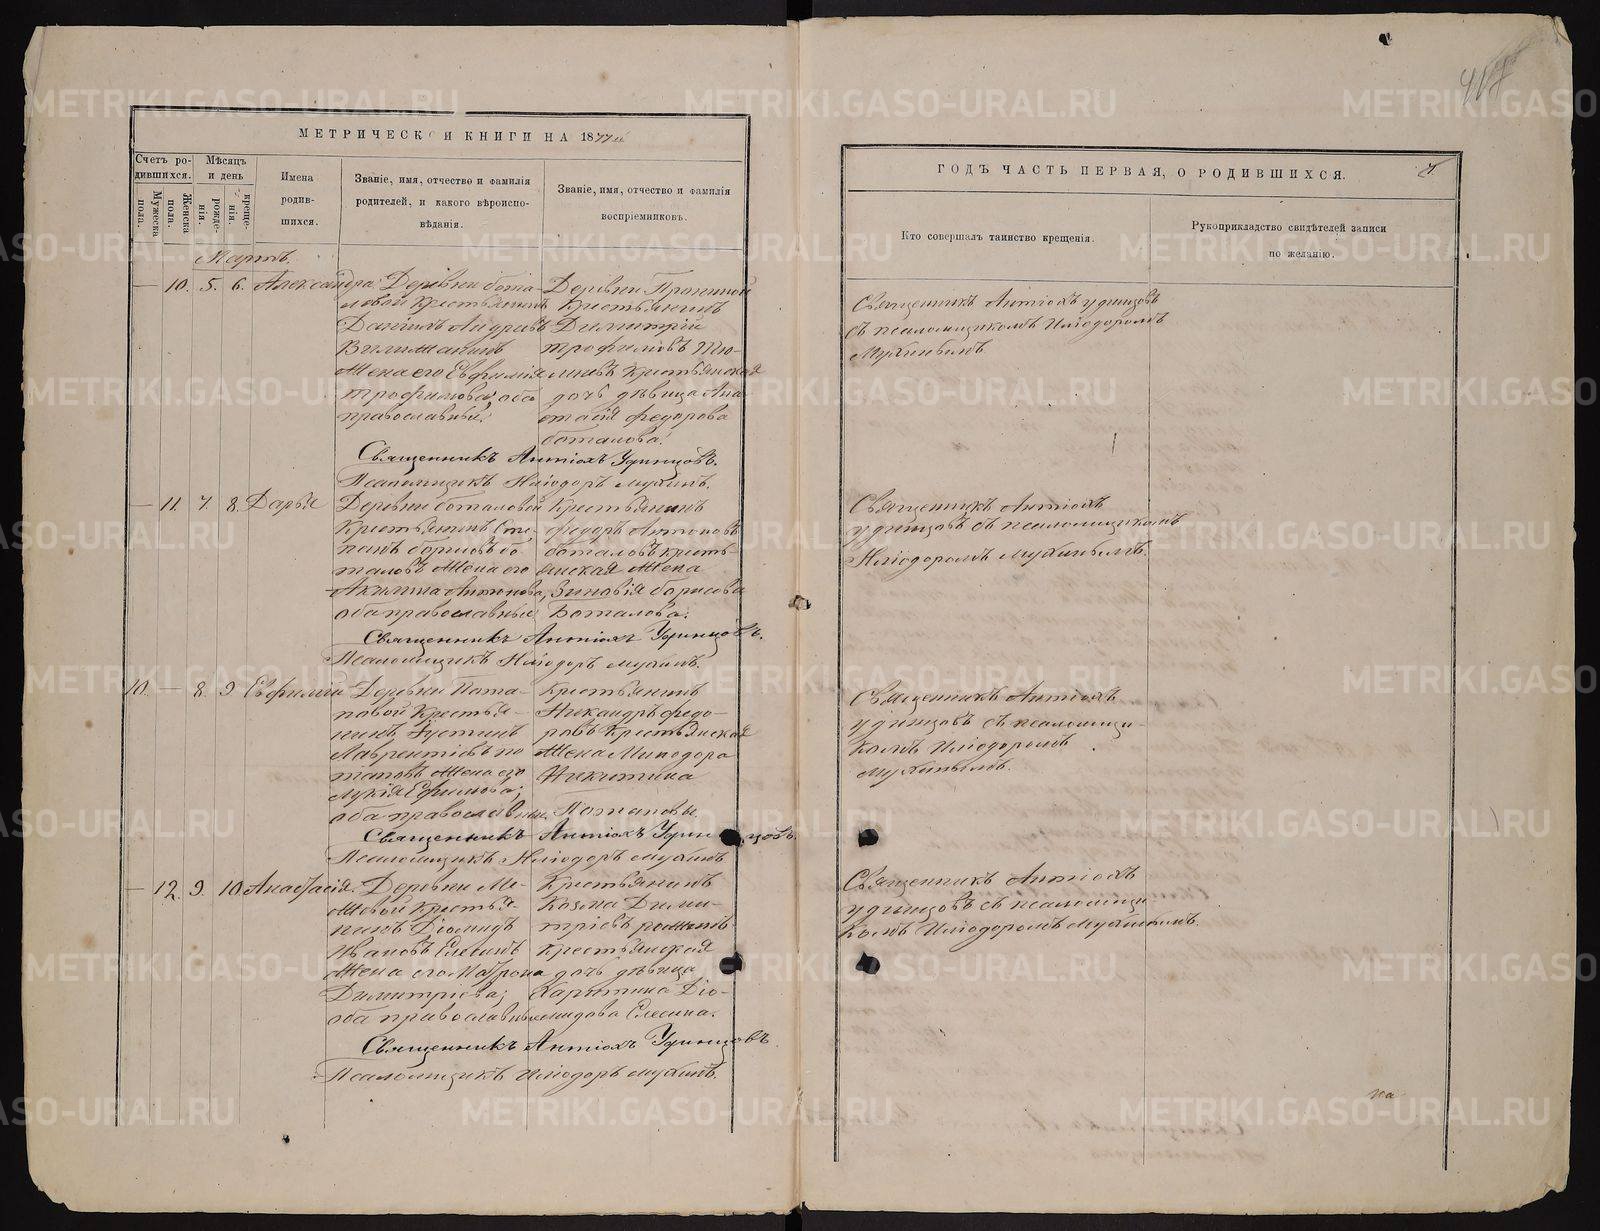 МЕТРИЧЕСКОЙ КНИГИ НА 1877й
Счетъ родившихся.
Мѣсяцъ и день
Мужеска пола.
Женска пола.
рожденія.
крещенія.
Имена родившихся.
Званіе, имя, отчество и фамилія родителей, и какого вѣроисповѣданія.
Званіе, имя, отчество и фамилія воспріемниковъ.
Мартъ.
— 10. 5. 6. Александра
Деревни Бота-
ловой Крестьянинъ
Даніилъ Андреевъ
жена его Евфимія
Трофимова, оба
православные.
Деревни
Крестьянинъ
Димитрій
Трофимовъ
Крестьянская
дочь дѣвица Ана-
стасія Федорова
Боталова.
Священникъ Антіохъ Удинцовъ.
Псаломщикъ Иліодоръ Мухинъ.
— 11. 7. 8. Дарья
Деревни Боталовой
Крестьянинъ Сте-
панъ Борисовъ Бо-
таловъ жена его
Акилина Антонова,
оба православные
Крестьянинъ
Федоръ Антоновъ
Боталовъ кресть-
янская жена
Зиновія Борисова
Боталова.
Священникъ Антіохъ Удинцовъ.
Псаломщикъ Иліодоръ Мухинъ.
10. — 8. 9 Евфимій
Деревни Пота-
повой Крестья-
нинъ Іустинъ
Лаврентіевъ По-
таповъ жена его
Лукія Ефимова;
оба православные.
Крестьянинъ
Никандръ Федо-
ровъ Крестьянская
жена Минодора
Никитина
Потаповы.
Священникъ Антіохъ Удинцовъ.
Псаломщикъ Иліодоръ Мухинъ
— 12. 9. 10 Анастасія.
Деревни Ме-
жевой Крестья-
нинъ Діомидъ
Ивановъ Елесинъ
жена его Матрона
Димитріева;
оба православные
Крестьянинъ
Козма Дими-
тріевъ
крестьянская
дочь дѣвица
Харитина Діо-
мидова Елесина.
Священникъ Антіохъ Удинцовъ.
Псаломщикъ Иліодоръ Мухинъ.
ГОДЪ ЧАСТЬ ПЕРВАЯ, О РОДИВШИХСЯ.
Кто совершалъ таинство крещенія.
Рукоприкладство свидѣтелей записи
по желанію.
Священникъ Антіохъ Удинцовъ
съ псаломщикомъ Иліодоромъ
Мухинымъ
Священникъ Антіохъ
Удинцовъ съ псаломщикомъ
Иліодоромъ Мухинымъ.
Священникъ Антіохъ
Удинцовъ съ псаломщи-
комъ Иліодоромъ
Мухинымъ.
Священникъ Антіохъ
Удинцовъ съ псаломщи-
комъ Иліодоромъ Мухинымъ.
METRIKI.GASO-URAL.RU